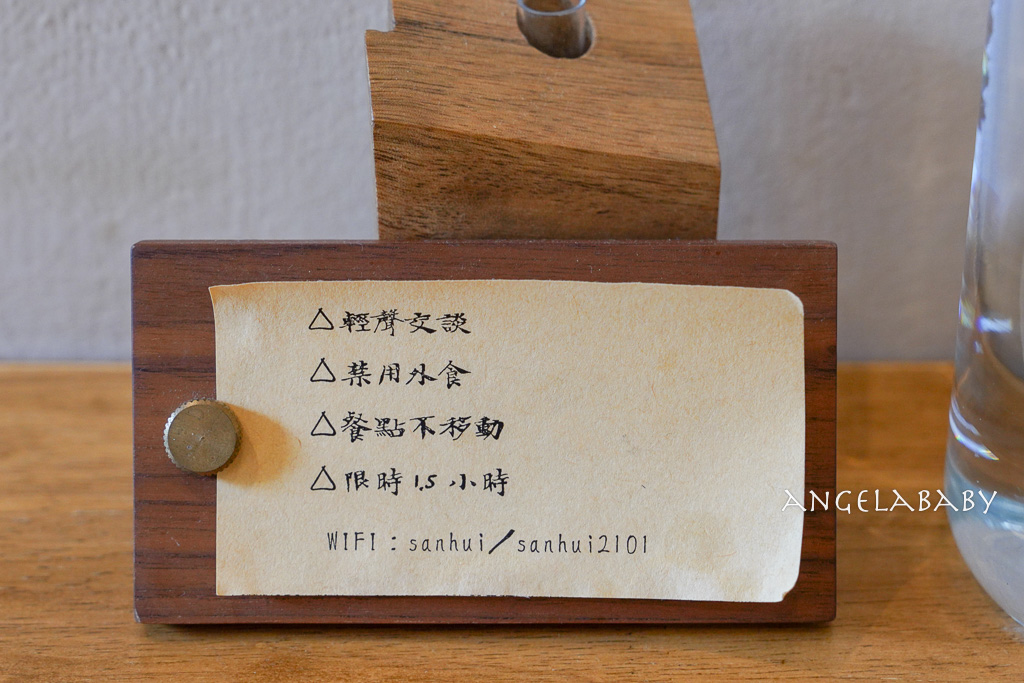 △輕聲交談
△禁用外食
△餐點不移動
△限時 1.5 小時
WIFI : sanhui/sanhui2101
ANGELABABY